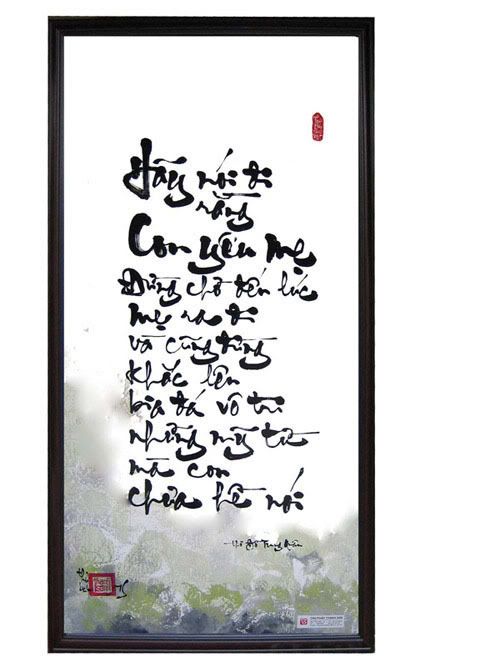 Hãy nói đi
rằng
Con yêu mẹ
Đừng chờ đến lúc
mẹ ra đi
và cũng đừng
khắc lên
bia đá vô tri
những mỹ từ
mà con
chưa hề nói
Đỗ Trung Quân